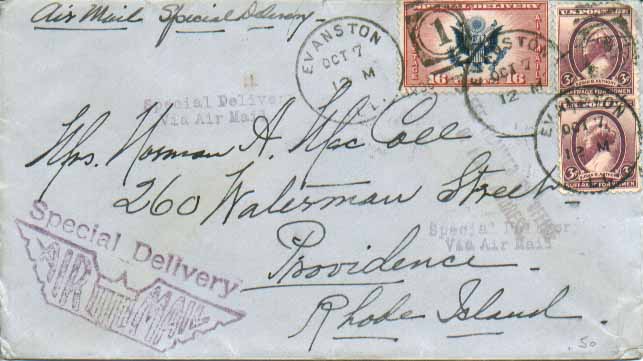 Air Mail Special Delivery
EVANSTON
OCT 7
12 M
SPECIAL DELIVERY
16
16
1
EVANSTON
OCT 7
12 M
U.S. POSTAGE
3¢
SUFFRAGE FOR WOMEN
EVANSTON
OCT 7
12 M
3¢
SUFFRAGE FOR WOMEN
Special Delivery
Via Air Mail
Mrs. Norman A. MacColl
260 Waterman Street
Special Delivery
Via Air Mail
Providence
Rhode Island.
Special Delivery
AIR MAIL
.50